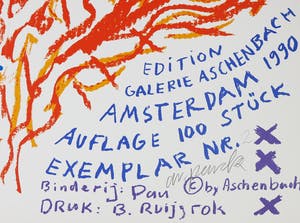 EDITION
GALERIE ASCHENBACH
AMSTERDAM 1990
AUFLAGE 100 STÜCK
EXEMPLAR NR. 2
Binderij: Pau © by Aschenbach
DRUK: B. Ruijsrok